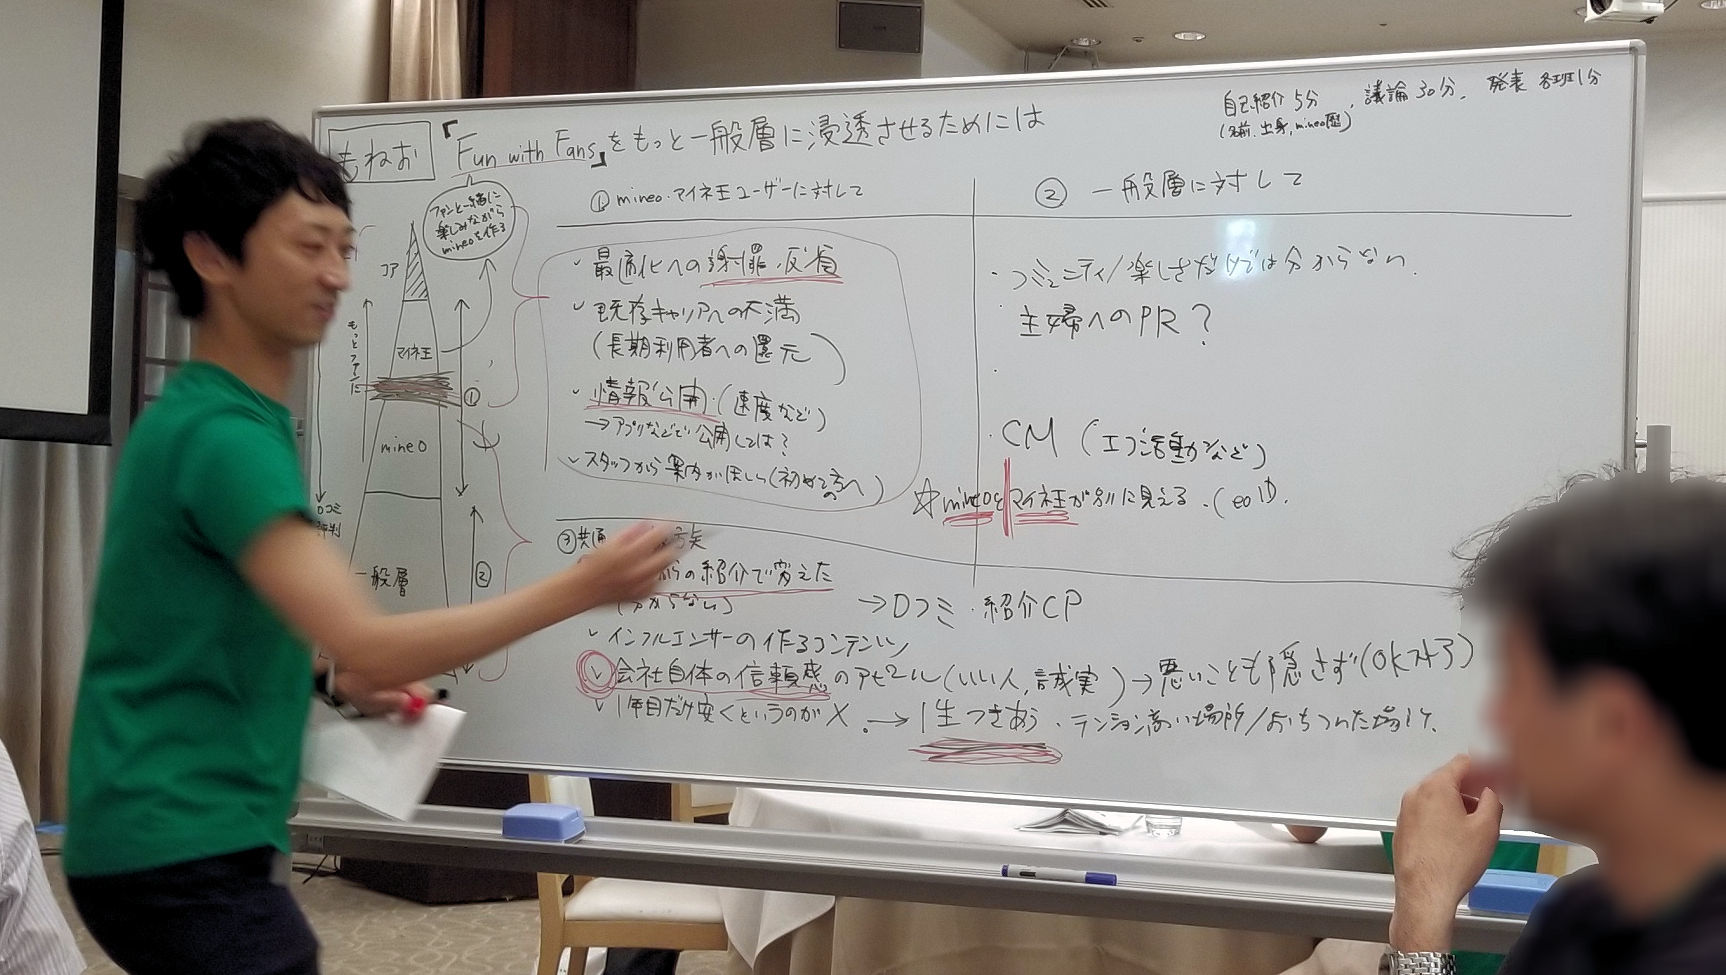 自己紹介 5分、議論 30分、発表 各班1分
(名前、出身、mineo歴)
もねお
「Fun with Fans」をもっと一般層に浸透させるためには
ファンと一緒に
楽しみながら
mineoを作る
① mineo・マイネ王ユーザーに対して
② 一般層に対して
コア
マイネ王
もっとファンに
①
mineo
口コミ
評判
一般層
②
✓ 最適化への謝罪・反省
✓ 既存キャリアへの不満
(長期利用者への還元)
✓ 情報公開・(速度など)
→アプリなどで公開しては?
✓ スタッフから案内がほしい(初めての方へ)
・コミュニティ/楽しさだけでは分からない.
・主婦へのPR?
・
・CM (エコ活動など)
☆mineoとマイネ王が別に見える.(eoID.
③共通
の紹介で変えた
(分からない)
→口コミ・紹介CP
✓ インフルエンサーの作るコンテンツ
✓ 会社自体の信頼感のアピール(いい人,誠実)→悪いことも隠さず(OKストア)
✓ 1年目だけ安くというのが×. →1生つきあう・テンション高い場所/おちついた場所.